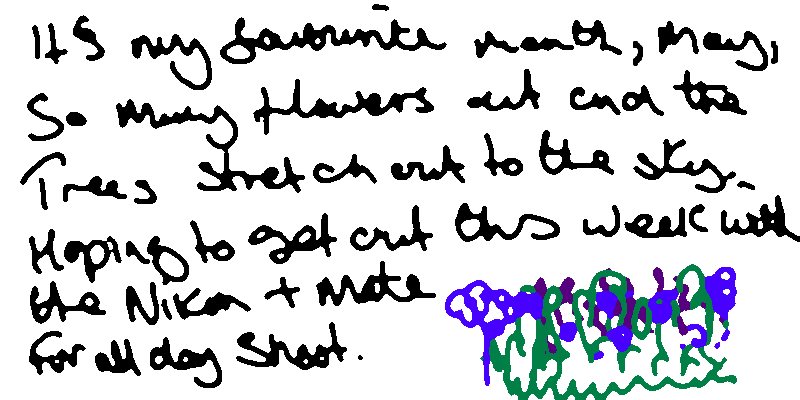 It's my favourite month, May,
So many flowers out and the
Trees stretch out to the sky.
Hoping to get out this week with
the Nikon + Mate
for all day shoot.